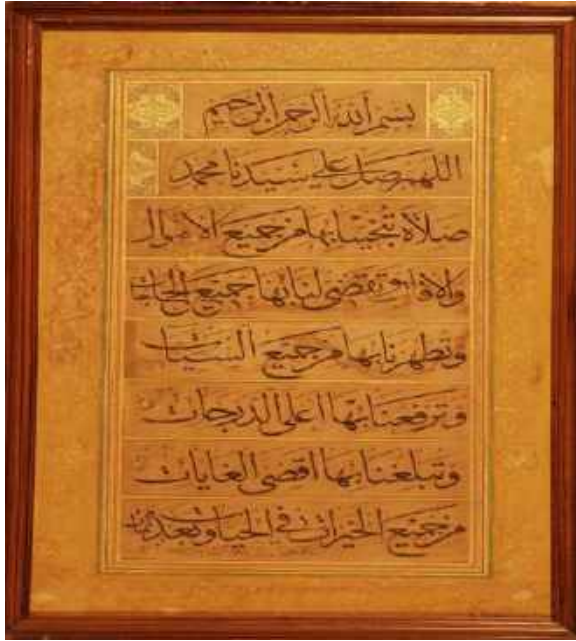 بسم الله الرحمن الرحيم
اللهم صل على سيدنا محمد
صلاة تنجينا بها من جميع الاهوال
والافات وتقضى لنا بها جميع الحاجات
وتطهرنا بها من جميع السيات
وترفعنا بها اعلى الدرجات
وتبلغنا بها اقصى الغايات
من جميع الخيرات في الحيات وبعد الممات